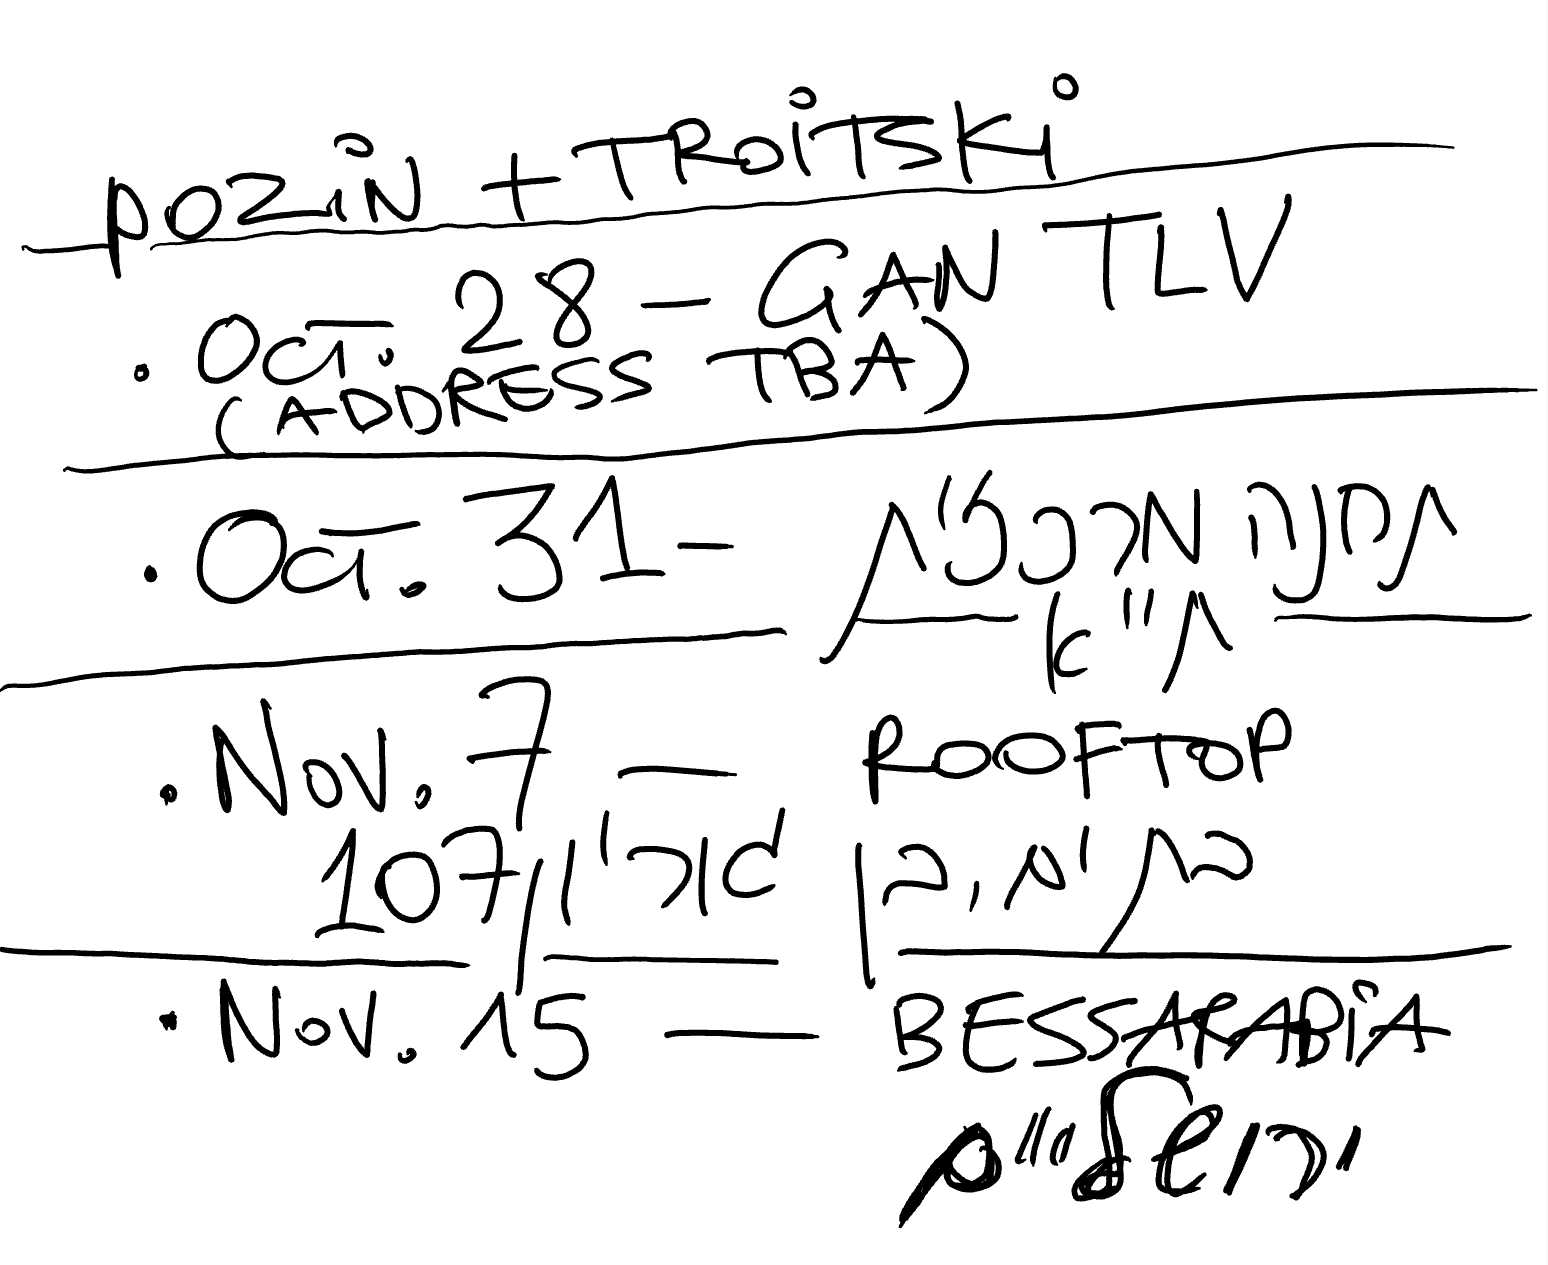 POZiN + TROiTSKi
· Oct. 28 — GAN TLV
(ADDRESS TBA)
· Oct. 31 - תחנה מרכזית
ת"א
· Nov. 7 — ROOFTOP
בת ים, בן גוריון 107
· Nov. 15 — BESSARABiA
ירושליים